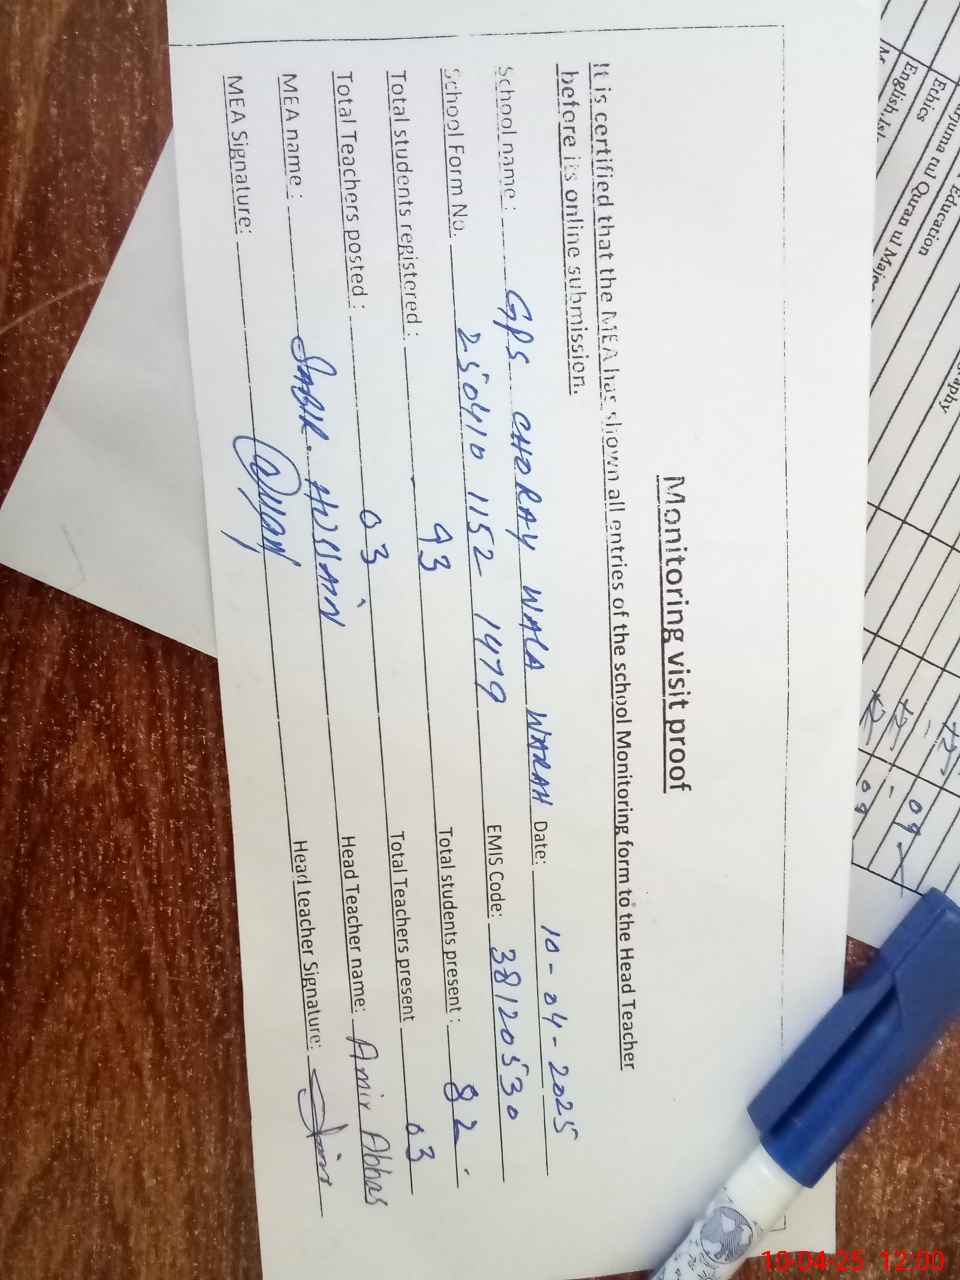 Monitoring visit proof
It is certified that the MEA has shown all entries of the school Monitoring form to the Head Teacher
before its online submission.
School name : GPS CHORAY WALA WARAH Date: 10-04-2025
School Form No. 250410 1152 1479 EMIS Code: 38120530
Total students registered : 93 Total students present : 82
Total Teachers posted : 03 Total Teachers present 03
MEA name : SABIR HUSSAIN Head Teacher name: Amir Abbas
MEA Signature: Head teacher Signature:
Education
Quran ul
Ethics
English
09
09
10-04-25 12:00